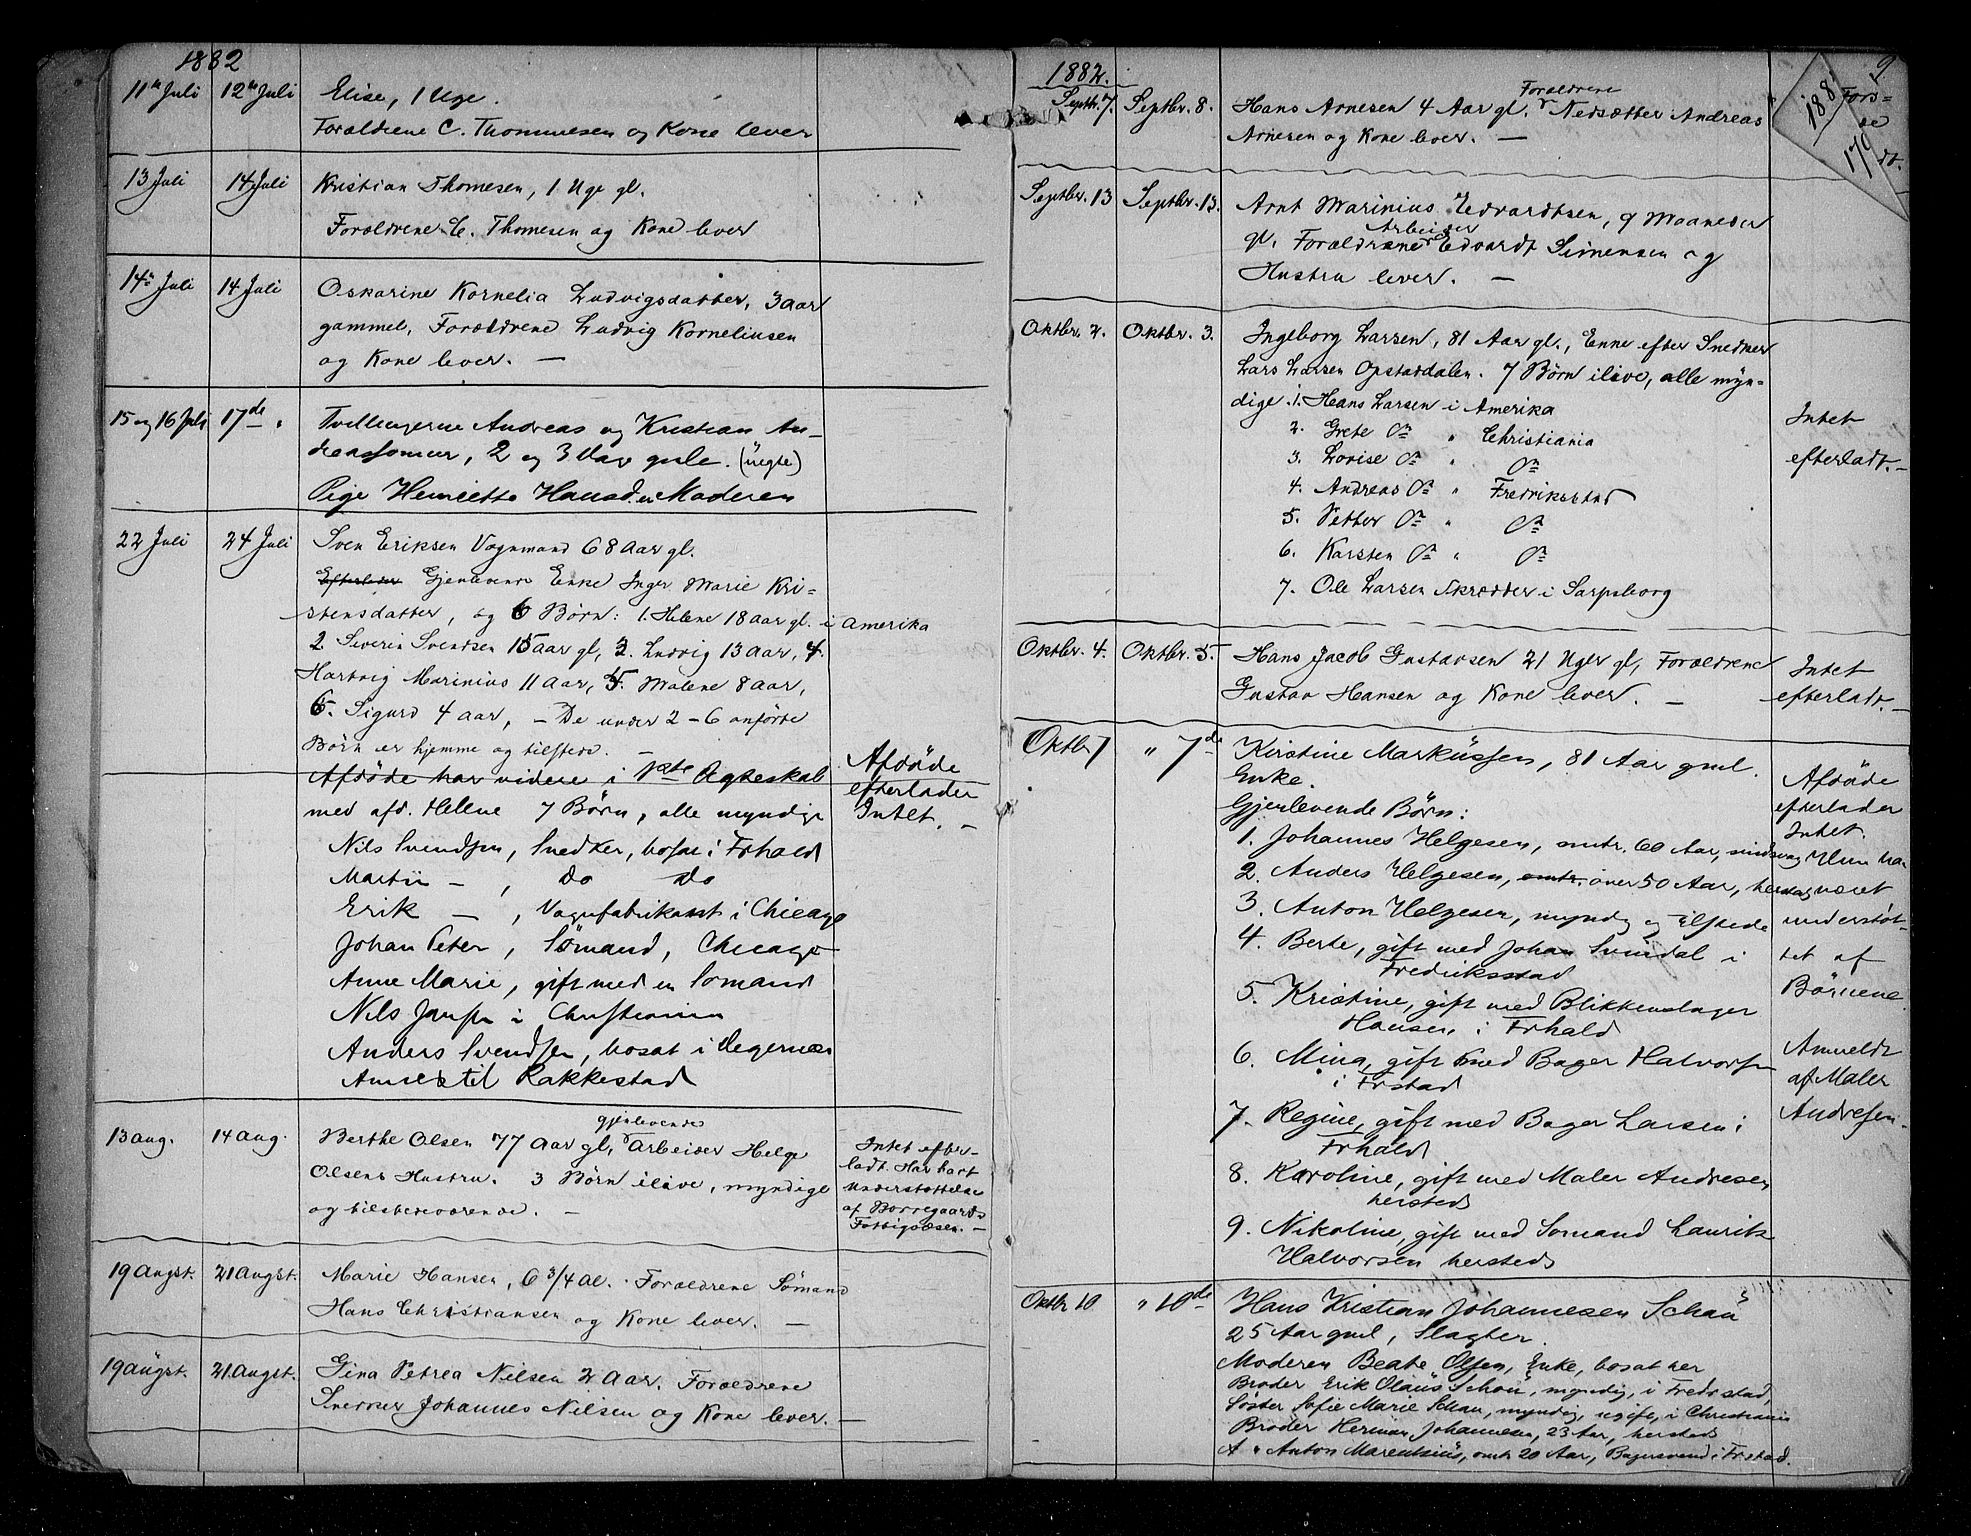 1882
11te Juli 12te Juli Elise, 1 Uge.
Forældrene C. Thommesen og Kone lever
13 Juli 14 Juli Kristian Thomesen, 1 Uge gl.
Forældrene C. Thomesen og Kone lever
14 Juli 14 Juli Oskarine Kornelia Ludvigsdatter, 3 aar
gammel, Forældrene Ludvig Korneliusen
og Kone lever. —
15 og 16 Juli 17de " Tvillingerne Andreas og Kristian An-
dreassønner, 2 og 3 Dage gamle. (uægte)
Pige Henriette Hansd. er Moderen
22 Juli 24 Juli Sven Eriksen Vognmand 68 Aar gl.
Efterlader Gjenlevende Enke Inger Marie Kri-
stensdatter, og 6 Børn: 1. Helene 18 aar gl. i Amerika
2. Severin Svendsen 15 aar gl, 3. Ludvig 13 aar, 4.
Hartvig Marinius 11 aar, 5. Malene 8 aar,
6. Sigurd 4 aar, — De under 2–6 anførte
Børn er hjemme og tilstede. —
Afdøde har videre i 1ste Ægteskab Afdøde
med afd. Hellene 7 Børn, alle myndige efterlader
Intet. —
Nils Svendsen, Snedker, bosat i Frhald
Martin — , do do
Erik — , Vognfabrikant i Chicago
Johan Peter, Sømand, Chicago
Anne Marie, gift med en Sømand
Nils Jansen i Christiania
Anders Svendsen, bosat i Degernæs
Annex til Rakkestad
13 aug. 14 aug. Berthe Olsen 77 Aar gl, gjenlevende Arbeider Helge
Olsens Hustru. 3 Børn ilive, myndige
og tilstedeværende. —
Intet efter-
ladt. Har havt
understøttelse
af Borregaards
Fattigvæsen. —
19 Augst. 21 Augst. Marie Hansen, 6 3/4 Al. Forældrene Sømand
Hans Christiansen og Kone lever. —
19 Augst. 21 Augst. Gina Petrea Nilsen 2 Aar. Forældrene
Snedker Johannes Nilsen og Kone lever. —
1882. 9
188
179
Septb. 7. Septbr. 8. Hans Arnesen 4 Aar gl. Forældrene Nedsætter Andreas
Arnesen og Kone lever. —
Septbr. 13 Septbr. 13. Arnt Marinius Edvardtsen, 9 Maaneder
gl. Forældrene Arbeider Edvardt Simensen og
Hustru lever. —
Oktbr. 2. Oktbr. 3. Ingeborg Larsen, 81 Aar gl., Enke efter Snedker
Lars Larsen Opstaddalen. 7 Børn ilive, alle myn-
dige. 1. Hans Larsen i Amerika
2. Grete do " Christiania
3. Lovise do " do
4. Andreas do " Fredrikstad
5. Petter do " do
6. Karsten do " do
7. Ole Larsen Skrædder i Sarpsborg
Intet
efterladt. —
Oktbr. 4. Oktbr. 5. Hans Jacob Gustavsen 21 Uger gl, Forældrene
Gustav Hansen og Kone lever. —
Intet
efterladt. —
Oktbr 7 " 7de Kirstine Markussen, 81 Aar gml.
Enke.
Gjenlevende Børn:
1. Johannes Helgesen, omtr. 60 Aar,
2. Anders Helgesen, omtr. over 50 Aar, hersteds
3. Anton Helgesen, myndig og tilstede
4. Berte, gift med Johan Svindal i
Fredriksstad
5. Kristine, gift med Blikkenslager
Hansen, i Frhald
6. Mina, gift med Bager Halvorsen
i Frstad
7. Regine, gift med Bager Larsen i
Frhald
8. Karoline, gift med Maler Andresen
hersteds
9. Nikoline, gift med Sømand Laurits
Halvorsen hersteds
Afdøde
efterlader
Intet.
Hun har
været
understøt-
tet af
Børnene.
Anmeldt
af Maler
Andresen.
Oktbr 10 " 10de Hans Kristian Johannesen Schau
25 Aar gml, Slagter.
Moderen Beate Olsen, Enke, bosat her
Broder Erik Olaus Schau, myndig, i Fredrstad,
Søster Sofie Marie Schau, myndig, ugift, i Christiania
Broder Herman Johannesen, 23 Aar, hersteds
" Anton Marentsius, omtr 20 Aar, Bagersvend i Frstad.